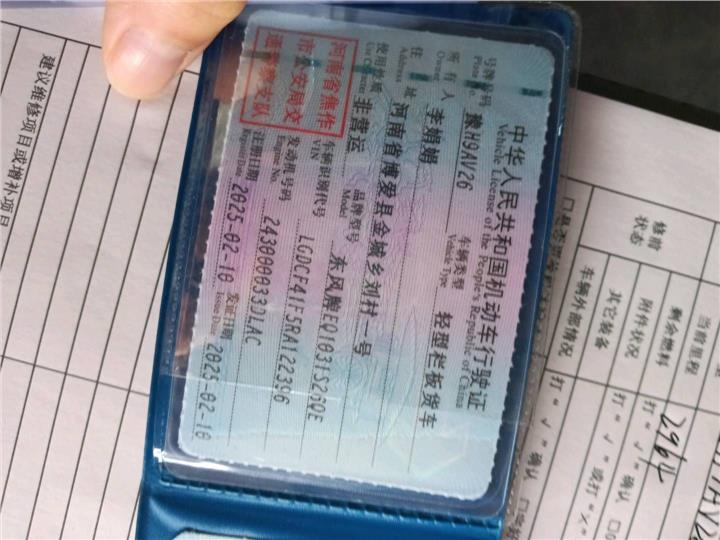 中华人民共和国机动车行驶证
Vehicle License of the People's Republic of China
号牌号码 豫H9AV26 车辆类型 轻型栏板货车
Plate No. Vehicle Type
所有人 李娟娟
Owner
住址 河南省博爱县金城乡刘村一号
Address
使用性质 非营运 品牌型号 东风牌EQ1031S26QE
Use Character Model
河南省焦作
市公安局交
通警察支队
车辆识别代号 LGDCF41F5RA122396
VIN
发动机号码 243000033DLAC
Engine No.
注册日期 2025-02-10 发证日期 2025-02-10
Register Date Issue Date
当前里程
剩余燃料
附件状况 打“√”确认
其它装备
车辆外部情况 打“√”确认 或打“×”
修前
状态
2964
建议维修项目或增补项目